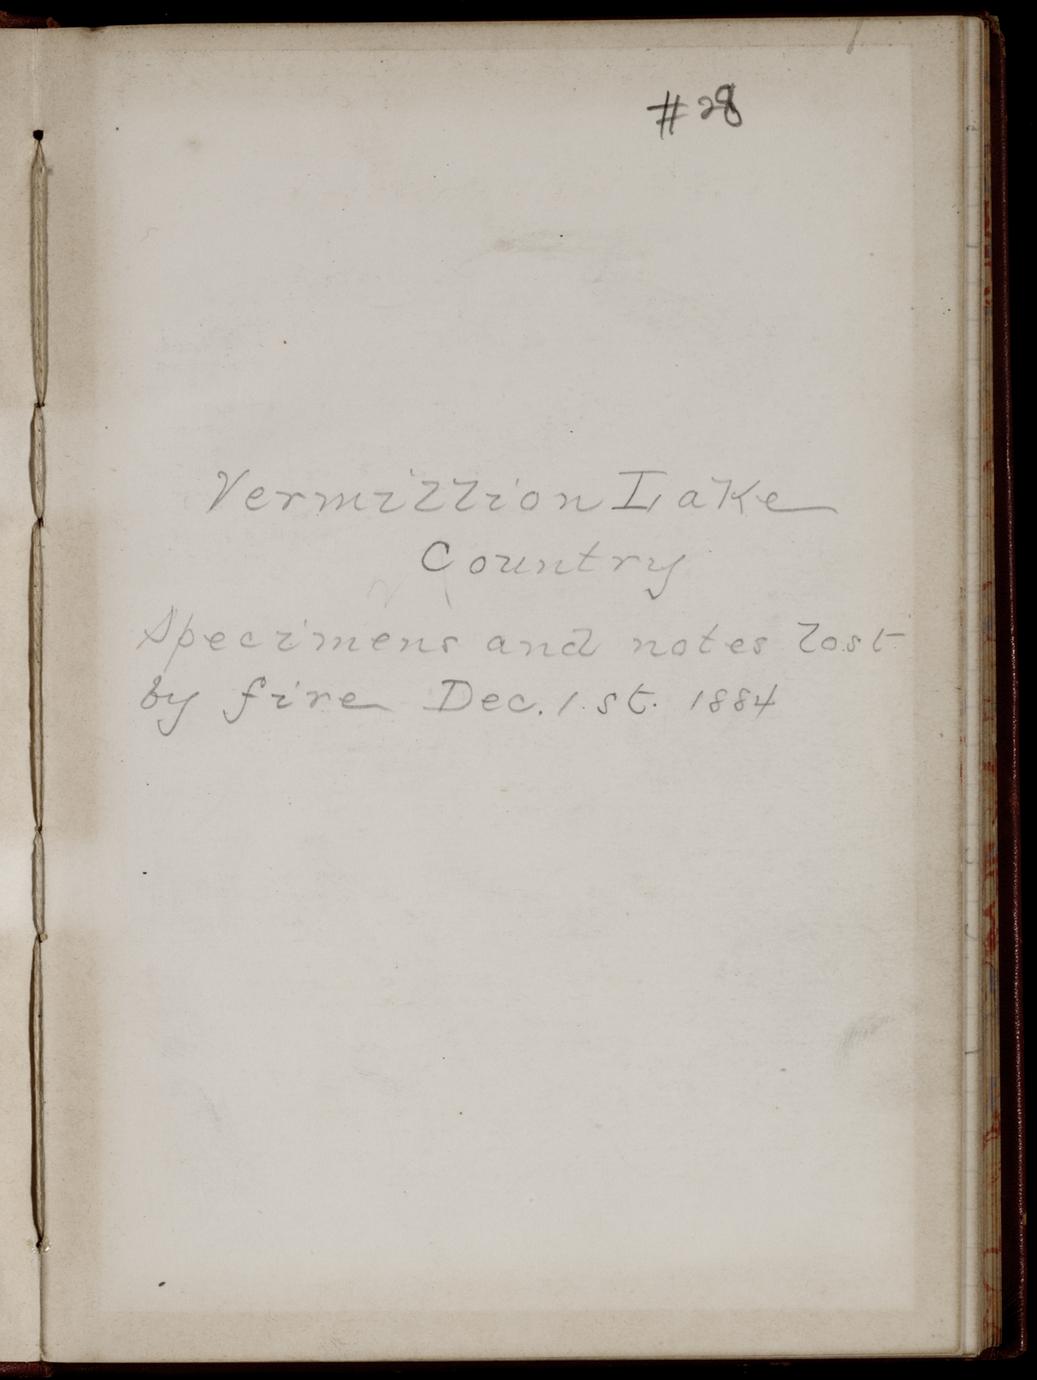 #28
Vermillion Lake
Country
Specimens and notes lost
by fire Dec. 1.st. 1884